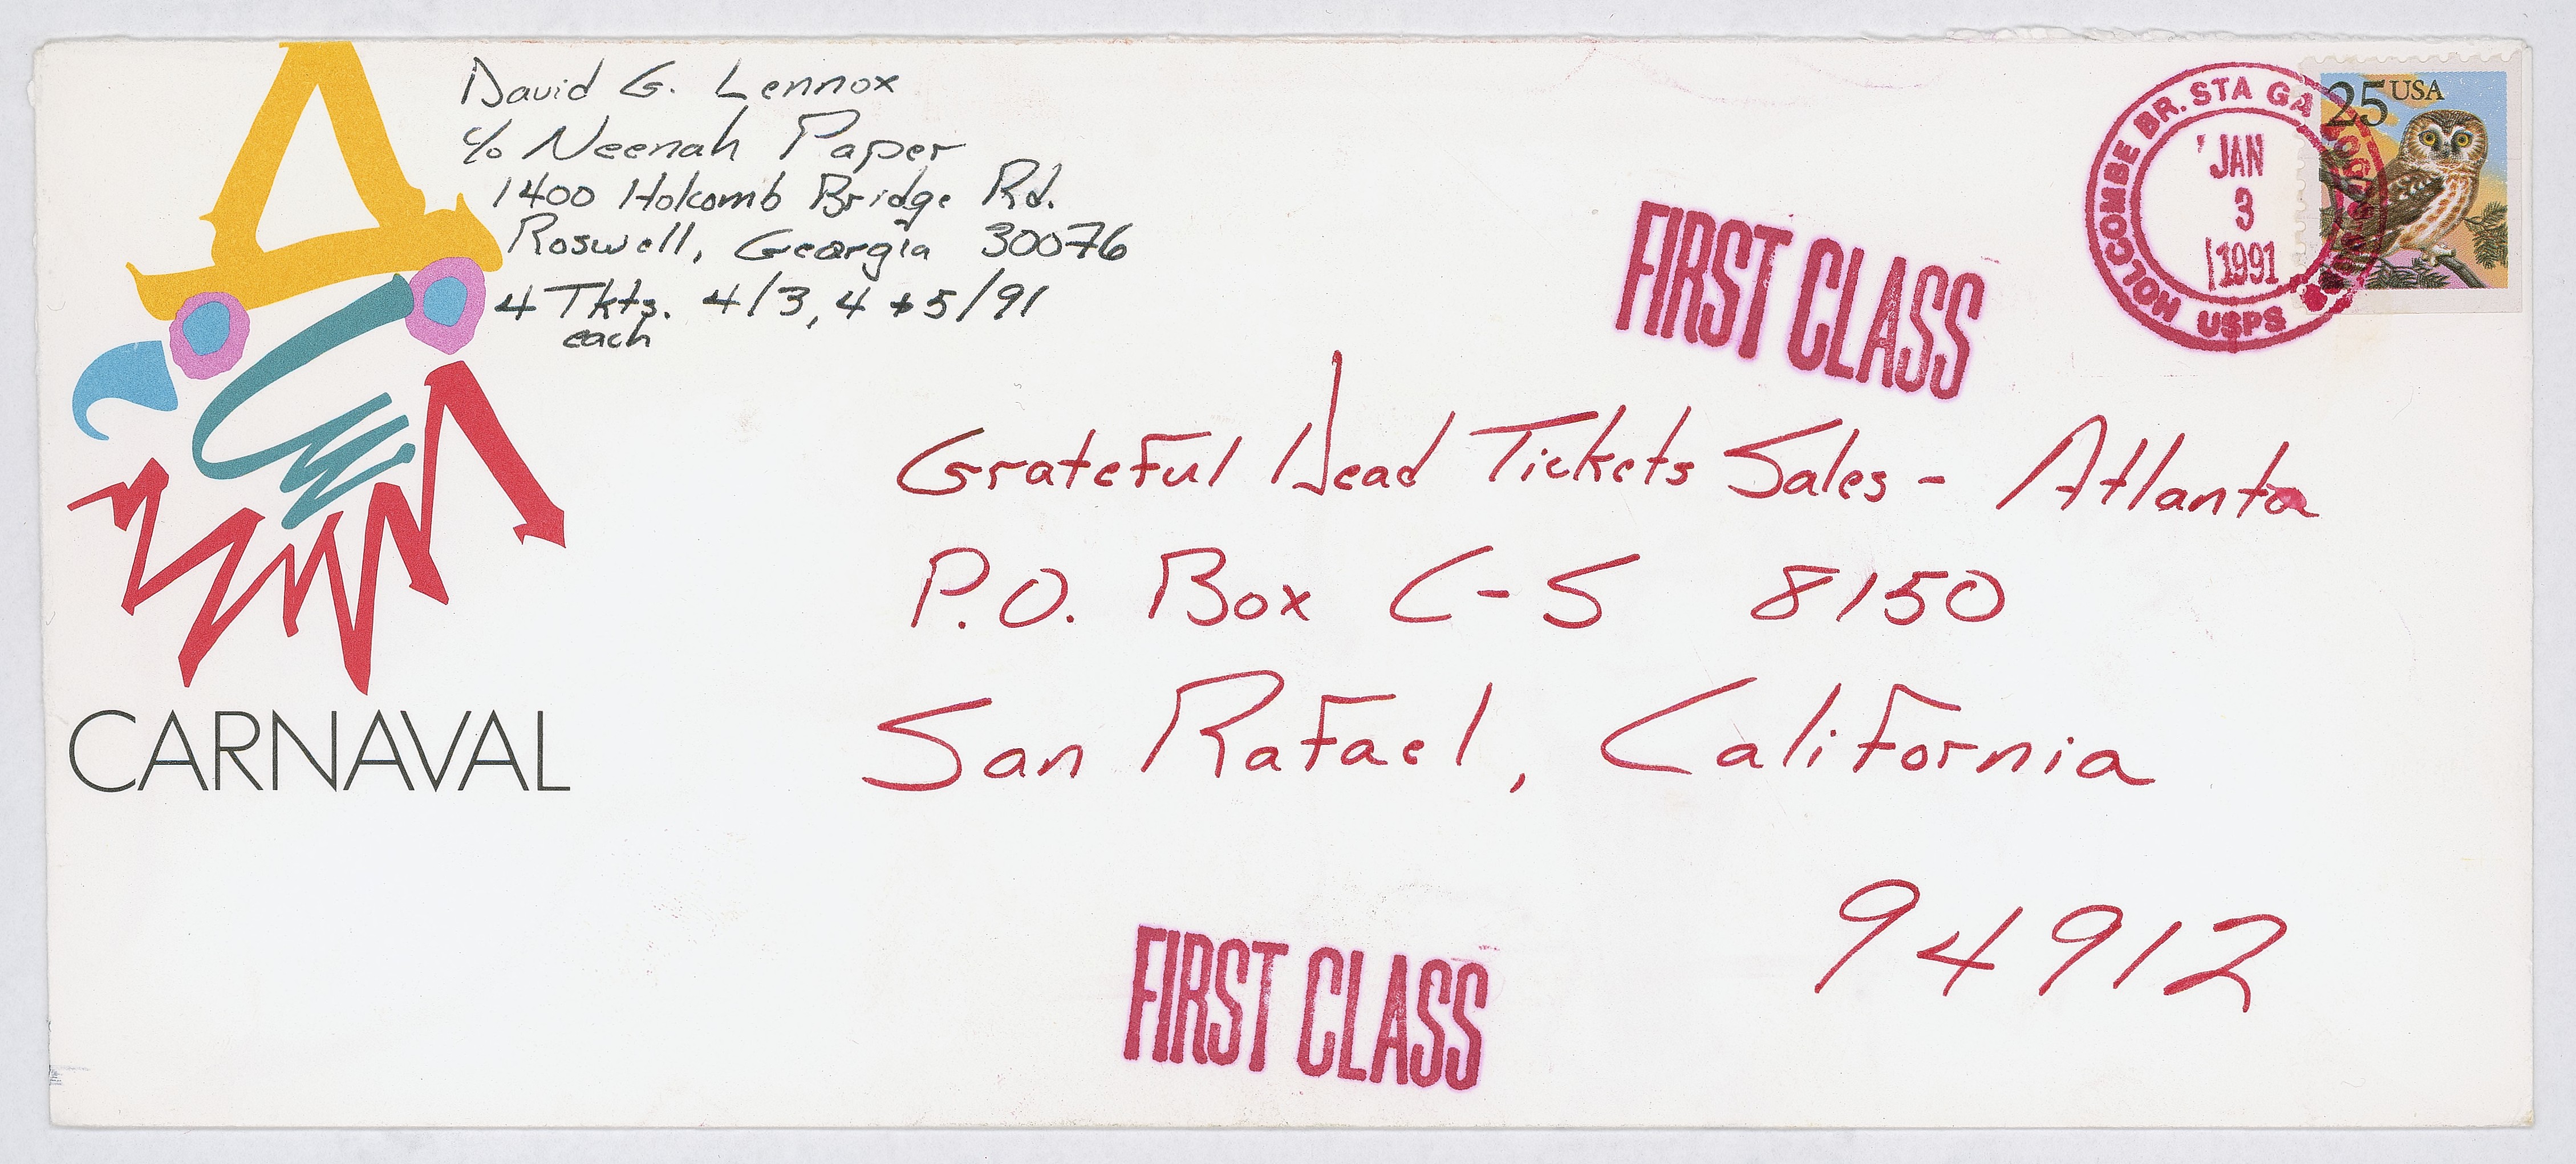 David G. Lennox
c/o Neenah Paper
1400 Holcomb Bridge Rd.
Roswell, Georgia 30076
4 Tkts. 4/3, 4 + 5/91
each
HOLCOMBE BR. STA GA
USPS
JAN
3
1991
25 USA
FIRST CLASS
Grateful Dead Tickets Sales - Atlanta
P.O. Box C-S 8150
San Rafael, California
94912
CARNAVAL
FIRST CLASS